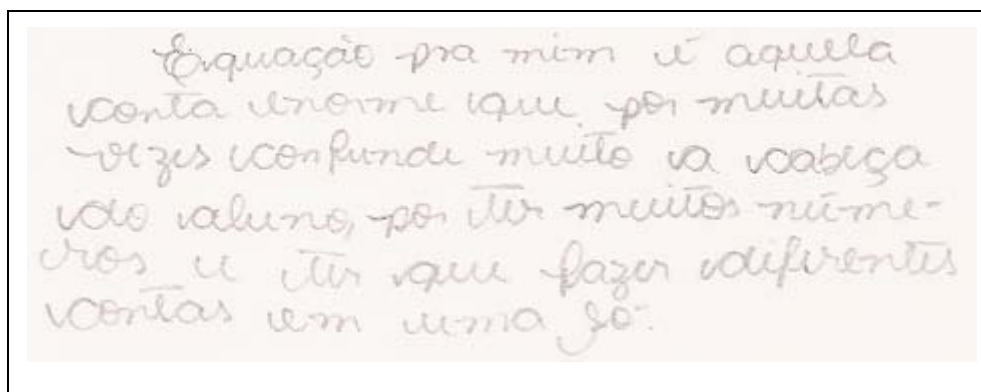 Equação pra mim é aquela
conta enorme que por muitas
vezes confunde muito a cabeça
do aluno, por ter muitos núme-
ros e ter que fazer diferentes
contas em uma só.